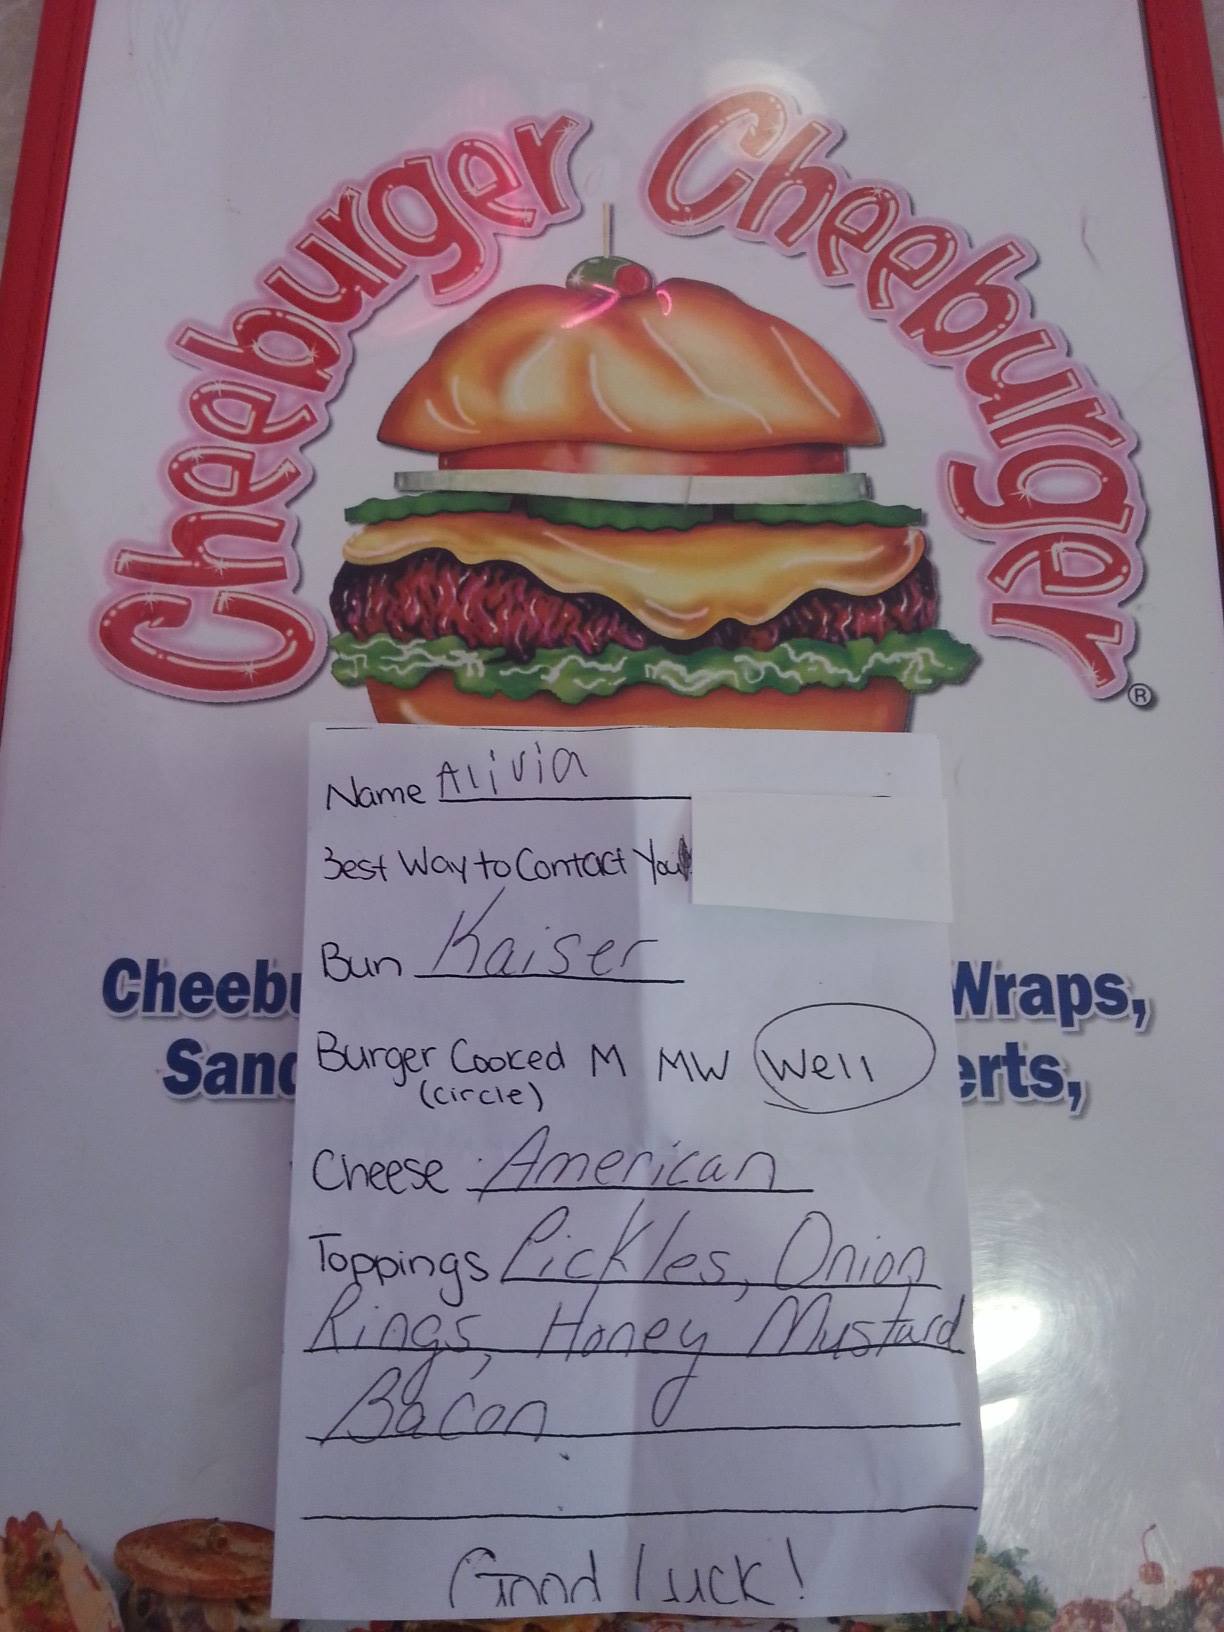 Cheeburger Cheeburger
®
Name Alivia
Best Way to Contact You
Bun Kaiser
Wraps,
Burger Cooked M MW Well
(circle)
Cheese American
Toppings Pickles, Onion
Rings, Honey Mustard
Bacon
Good luck!